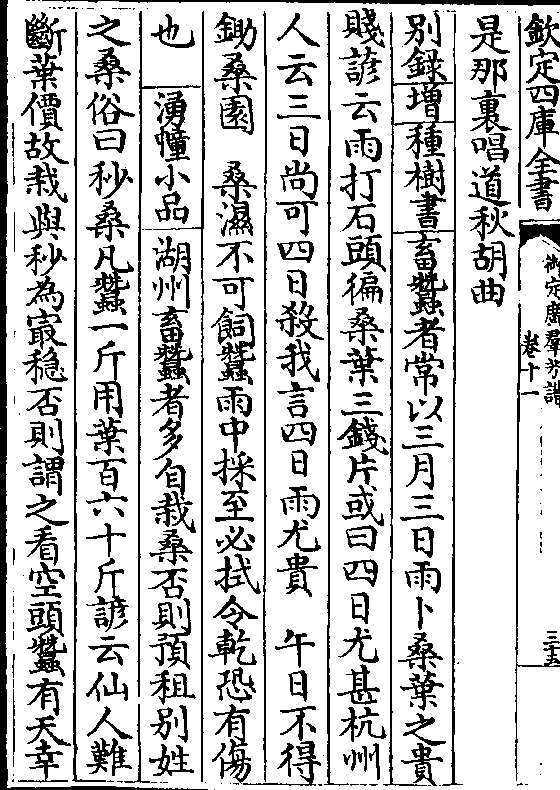 欽定四庫全書
御定廣羣芳譜
卷十一
三十五
是那裏唱道秋胡曲
別録增種樹書畜蠶者常以三月三日雨卜桑葉之貴
賤諺云雨打石頭徧桑葉三錢片或曰四日尤甚杭州
人云三日尚可四日殺我言四日雨尤貴　午日不得
鋤桑園　桑濕不可飼蠶雨中採至必拭令乾恐有傷
也　湧幢小品湖州畜蠶者多自栽桑否則預租别姓
之桑俗曰秒桑凡蠶一斤用葉百六十斤諺云仙人難
斷葉價故栽與秒為㝡穏否則謂之看空頭蠶有天幸